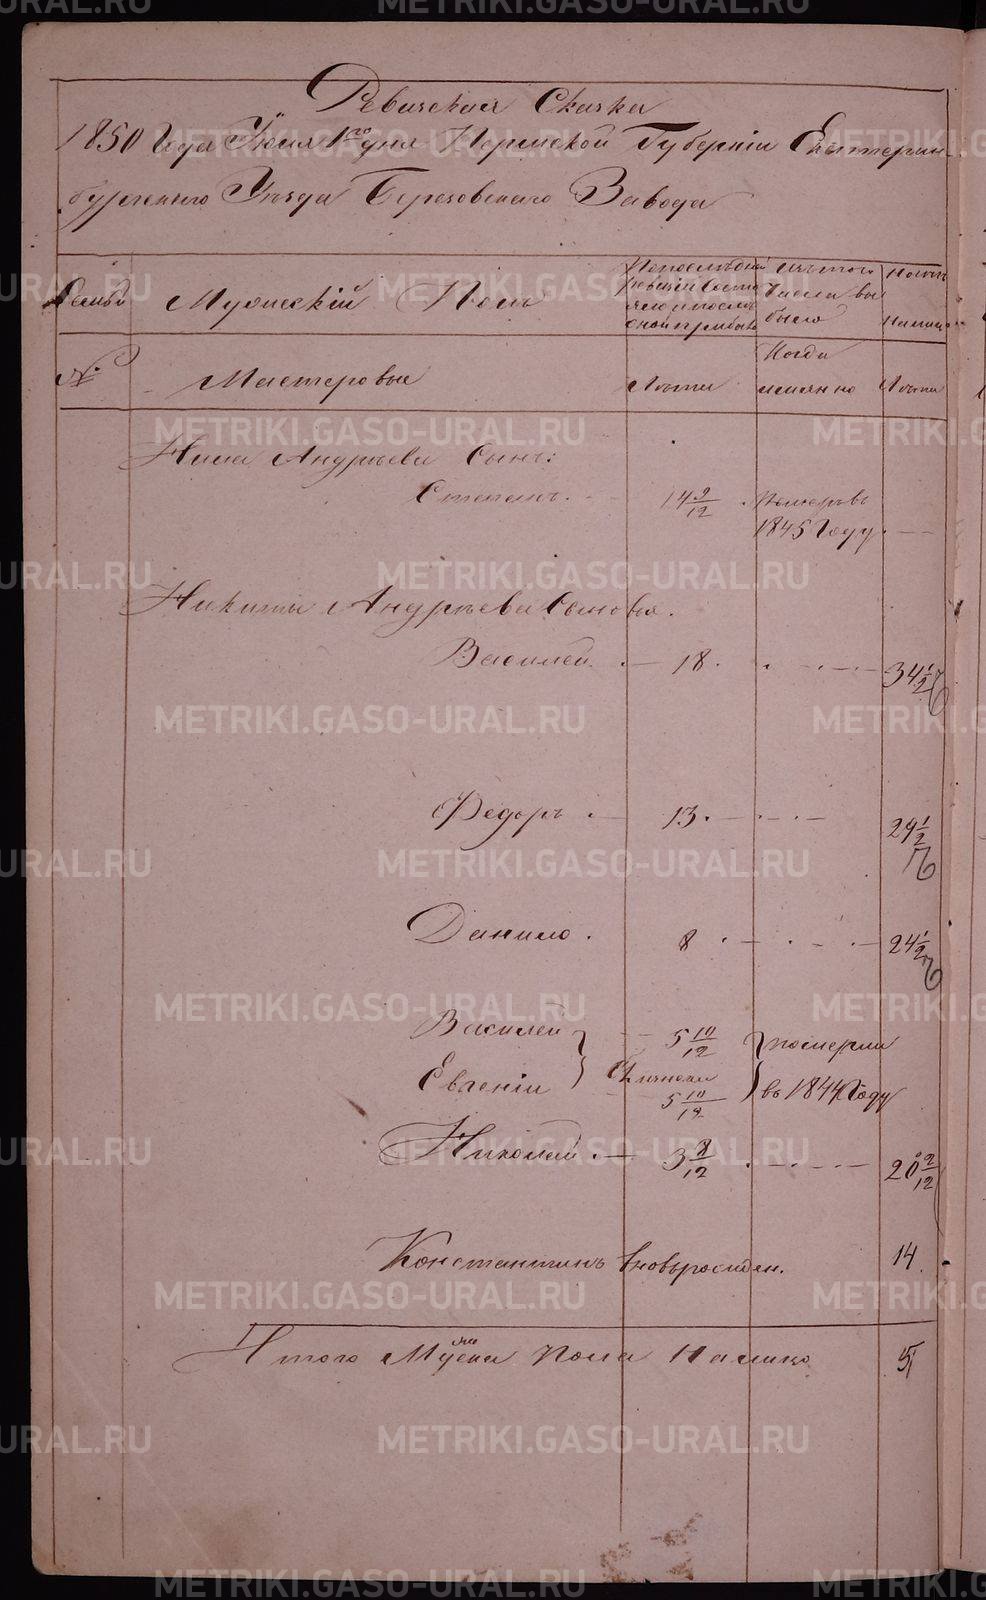 Ревизская Сказка
1850 Года Июля 1го дня Пермской Губерніи Екатерин-
бургскаго Уѣзда Березовскаго Завода
Семьи
Мужескій Полъ
По последней ревизіи состояло и после оной прибыло
Изъ того числа выбыло
Ныне на лицо
№
Мастеровые
Лѣта
Когда имянно
Лѣта
Андрѣева Сынъ:
Степанъ. 14 9/12 Померъ въ 1845 Году.
Никиты Андрѣева Сыновья.
Василей. 18. 34 1/2
Федоръ 13. 29 1/2
Данило. 8 24 1/2
Василей 5 10/12 померли
Евгеній близнецы 5 10/12 въ 1844 Году
Николай. 3 8/12 20 2/12
Константинъ вновьрожден. 14.
Итого Мужска пола На лицо 5
METRIKI.GASO-URAL.RU